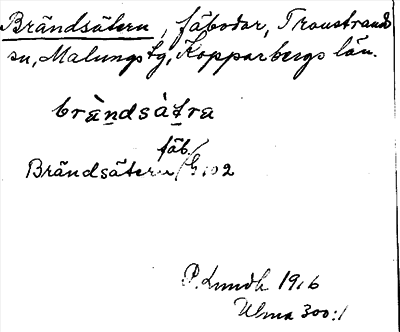 Brändsätern, fäbodar, Transtrands
sn, Malungs tg, Kopparbergs län.
brändsàtra
fäb.
Brändsätern / G 102
P. Lundh 1916
Ulma 300:1